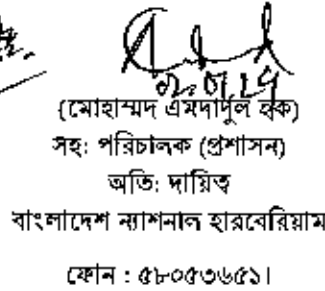 ০২.০১.২৭
(মোহাম্মদ এমদাদুল হক)
সহ: পরিচালক (প্রশাসন)
অতি: দায়িত্ব
বাংলাদেশ ন্যাশনাল হারবেরিয়াম
ফোন : ৫৮০৫৩৬৫১।